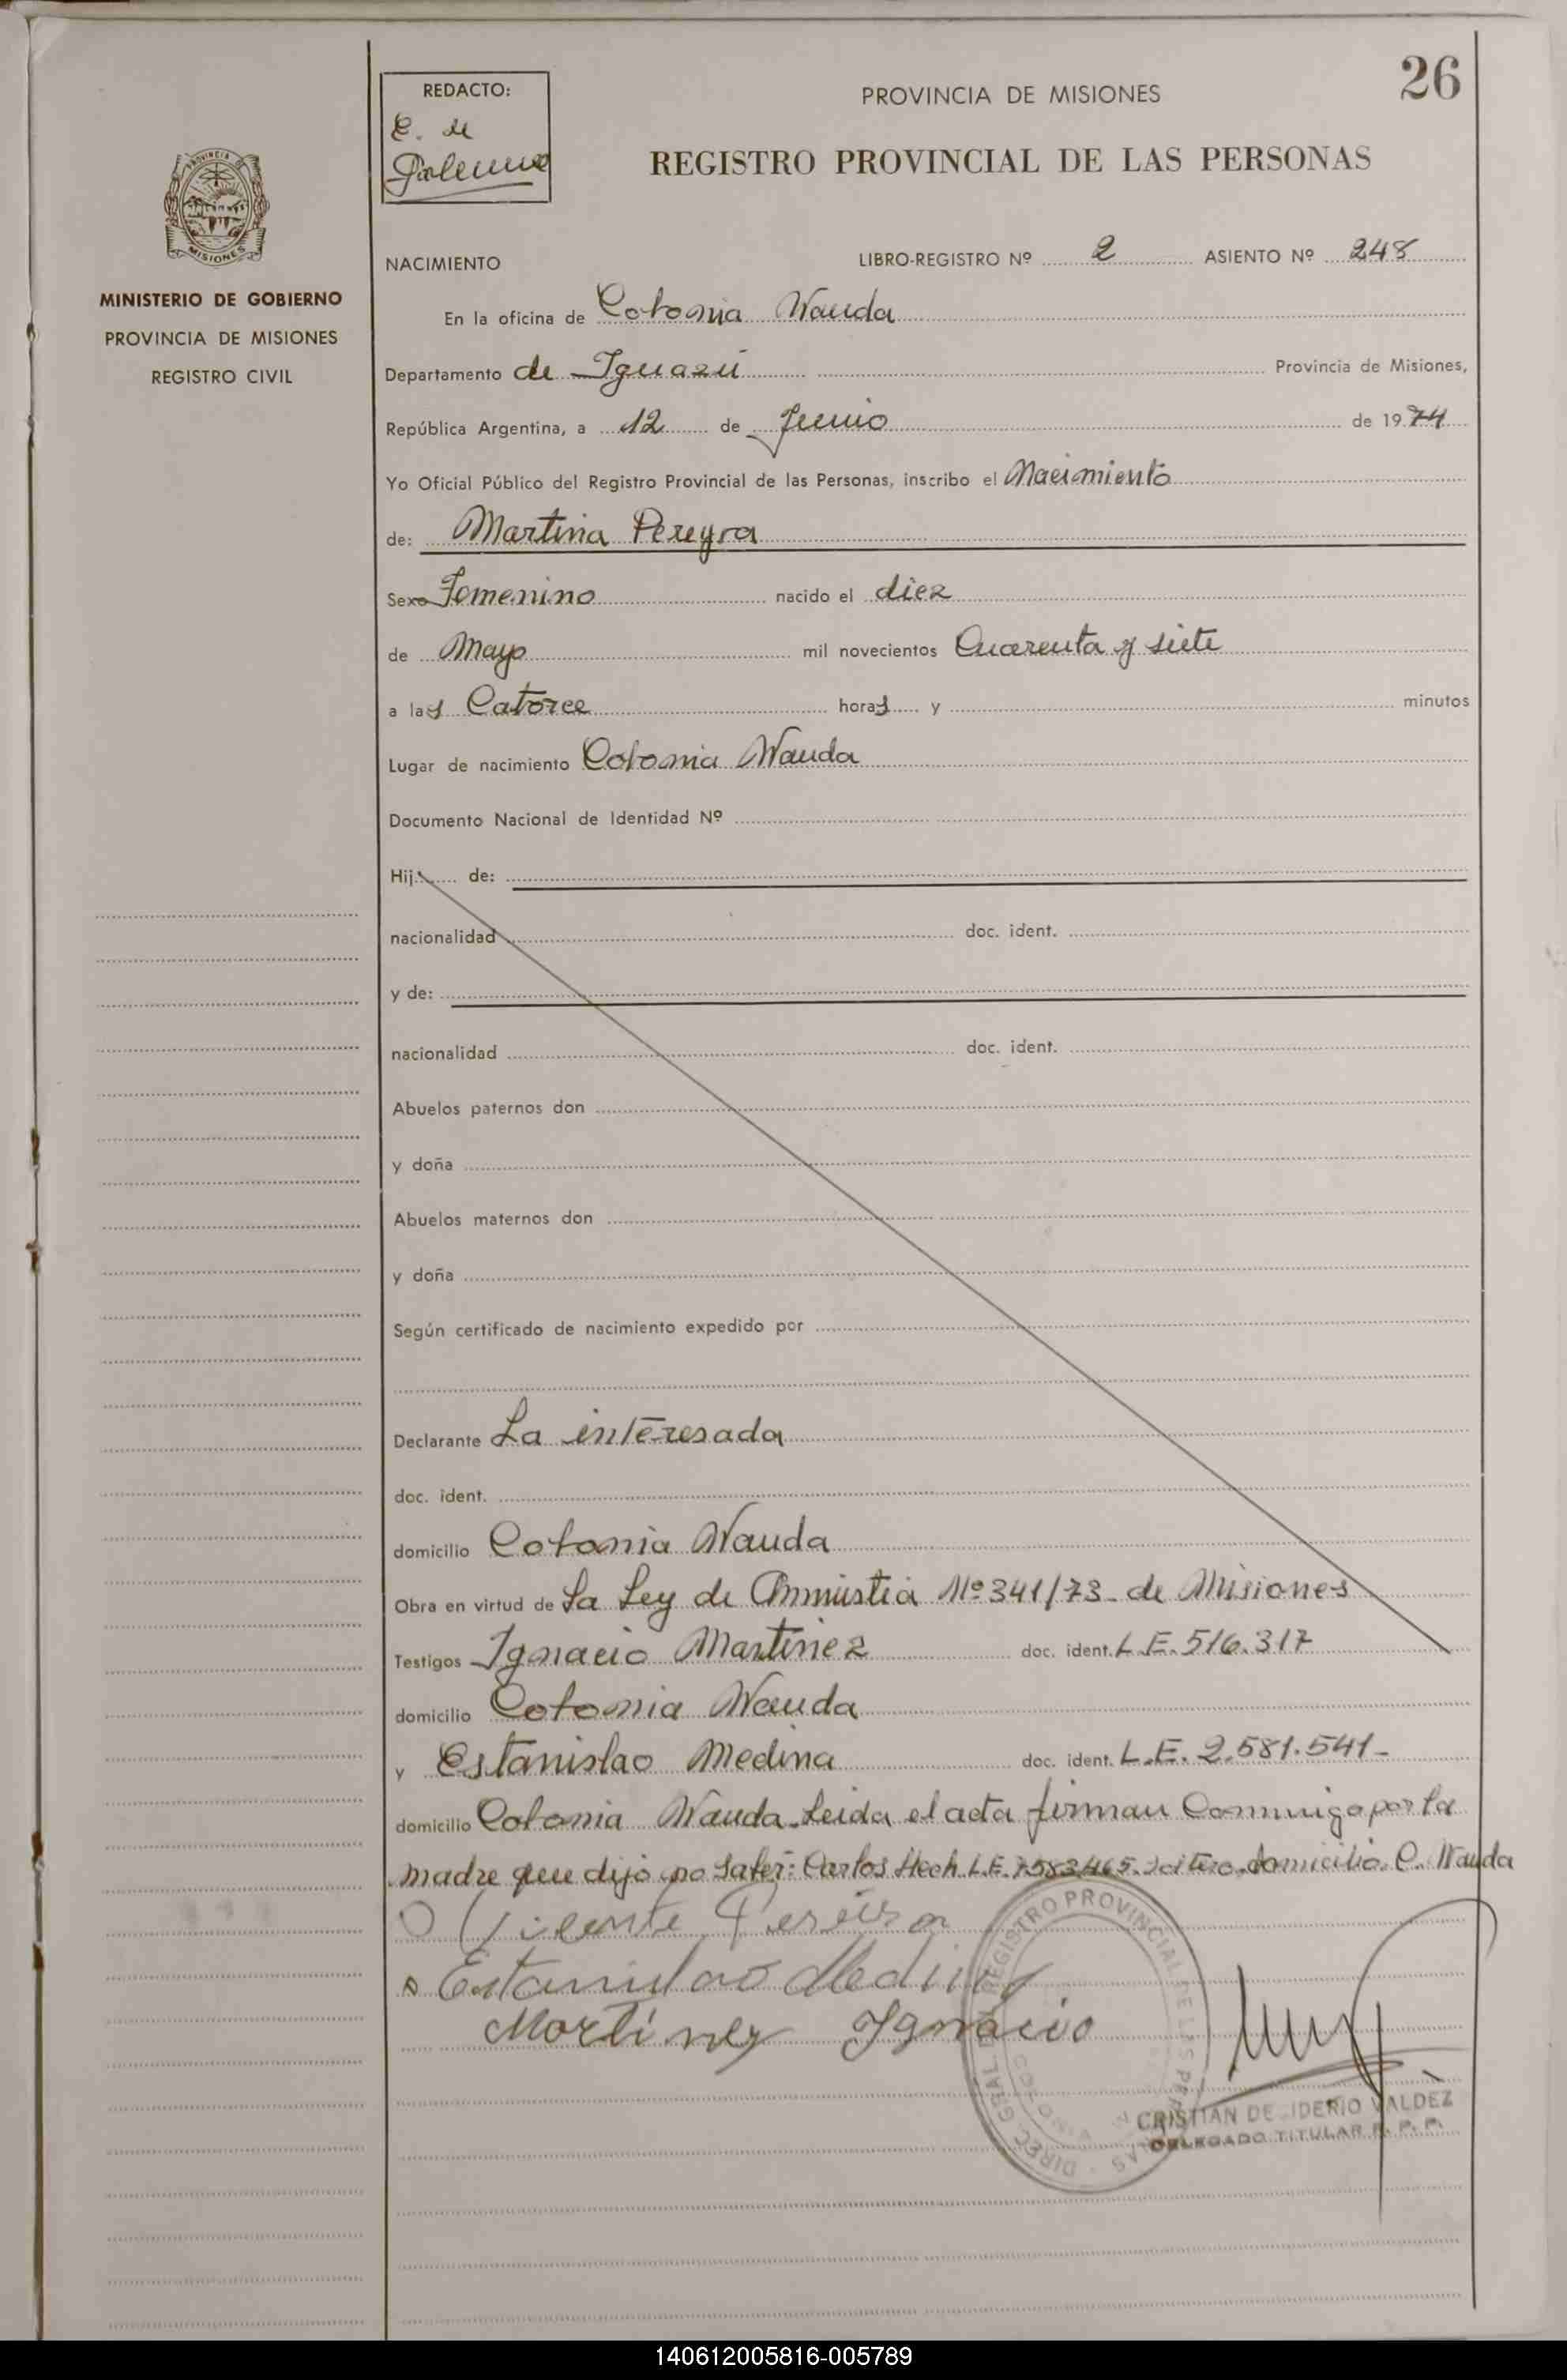 26
REDACTO:
E. de
PROVINCIA DE MISIONES
REGISTRO PROVINCIAL DE LAS PERSONAS
PROVINCIA DE
MISIONES
MINISTERIO DE GOBIERNO
PROVINCIA DE MISIONES
REGISTRO CIVIL
NACIMIENTO LIBRO-REGISTRO Nº 2 ASIENTO Nº 248
En la oficina de Colonia Wanda
Departamento de Iguazú Provincia de Misiones,
República Argentina, a 12 de Junio de 1974
Yo Oficial Público del Registro Provincial de las Personas, inscribo el Nacimiento
de: Martina Pereyra
Sexo Femenino nacido el diez
de Mayo mil novecientos Cuarenta y siete
a las Catorce horas y minutos
Lugar de nacimiento Colonia Wanda
Documento Nacional de Identidad Nº
Hij de:
nacionalidad doc. ident.
y de:
nacionalidad doc. ident.
Abuelos paternos don
y doña
Abuelos maternos don
y doña
Según certificado de nacimiento expedido por
Declarante La interesada
doc. ident.
domicilio Colonia Wanda
Obra en virtud de La Ley de Amnistia Nº 341/73 - de Misiones
Testigos Ignacio Martinez doc. ident. L.E. 516.317
domicilio Colonia Wanda
y Estanislao Medina doc. ident. L.E. 2.581.541-
domicilio Colonia Wanda. Leida el acta firman Conmigo por la
madre que dijo no saber: Carlos Hech L.E. 7583465. domicilio C. Wanda
Vicente Pereira
Estanislao Medina
Martínez Ignacio
REGISTRO PROVINCIAL DE LAS PERSONAS
DIREC. GRAL. DEL
CRISTIAN DE IDERIO VALDEZ
DELEGADO TITULAR R. P. P.
140612005816-005789